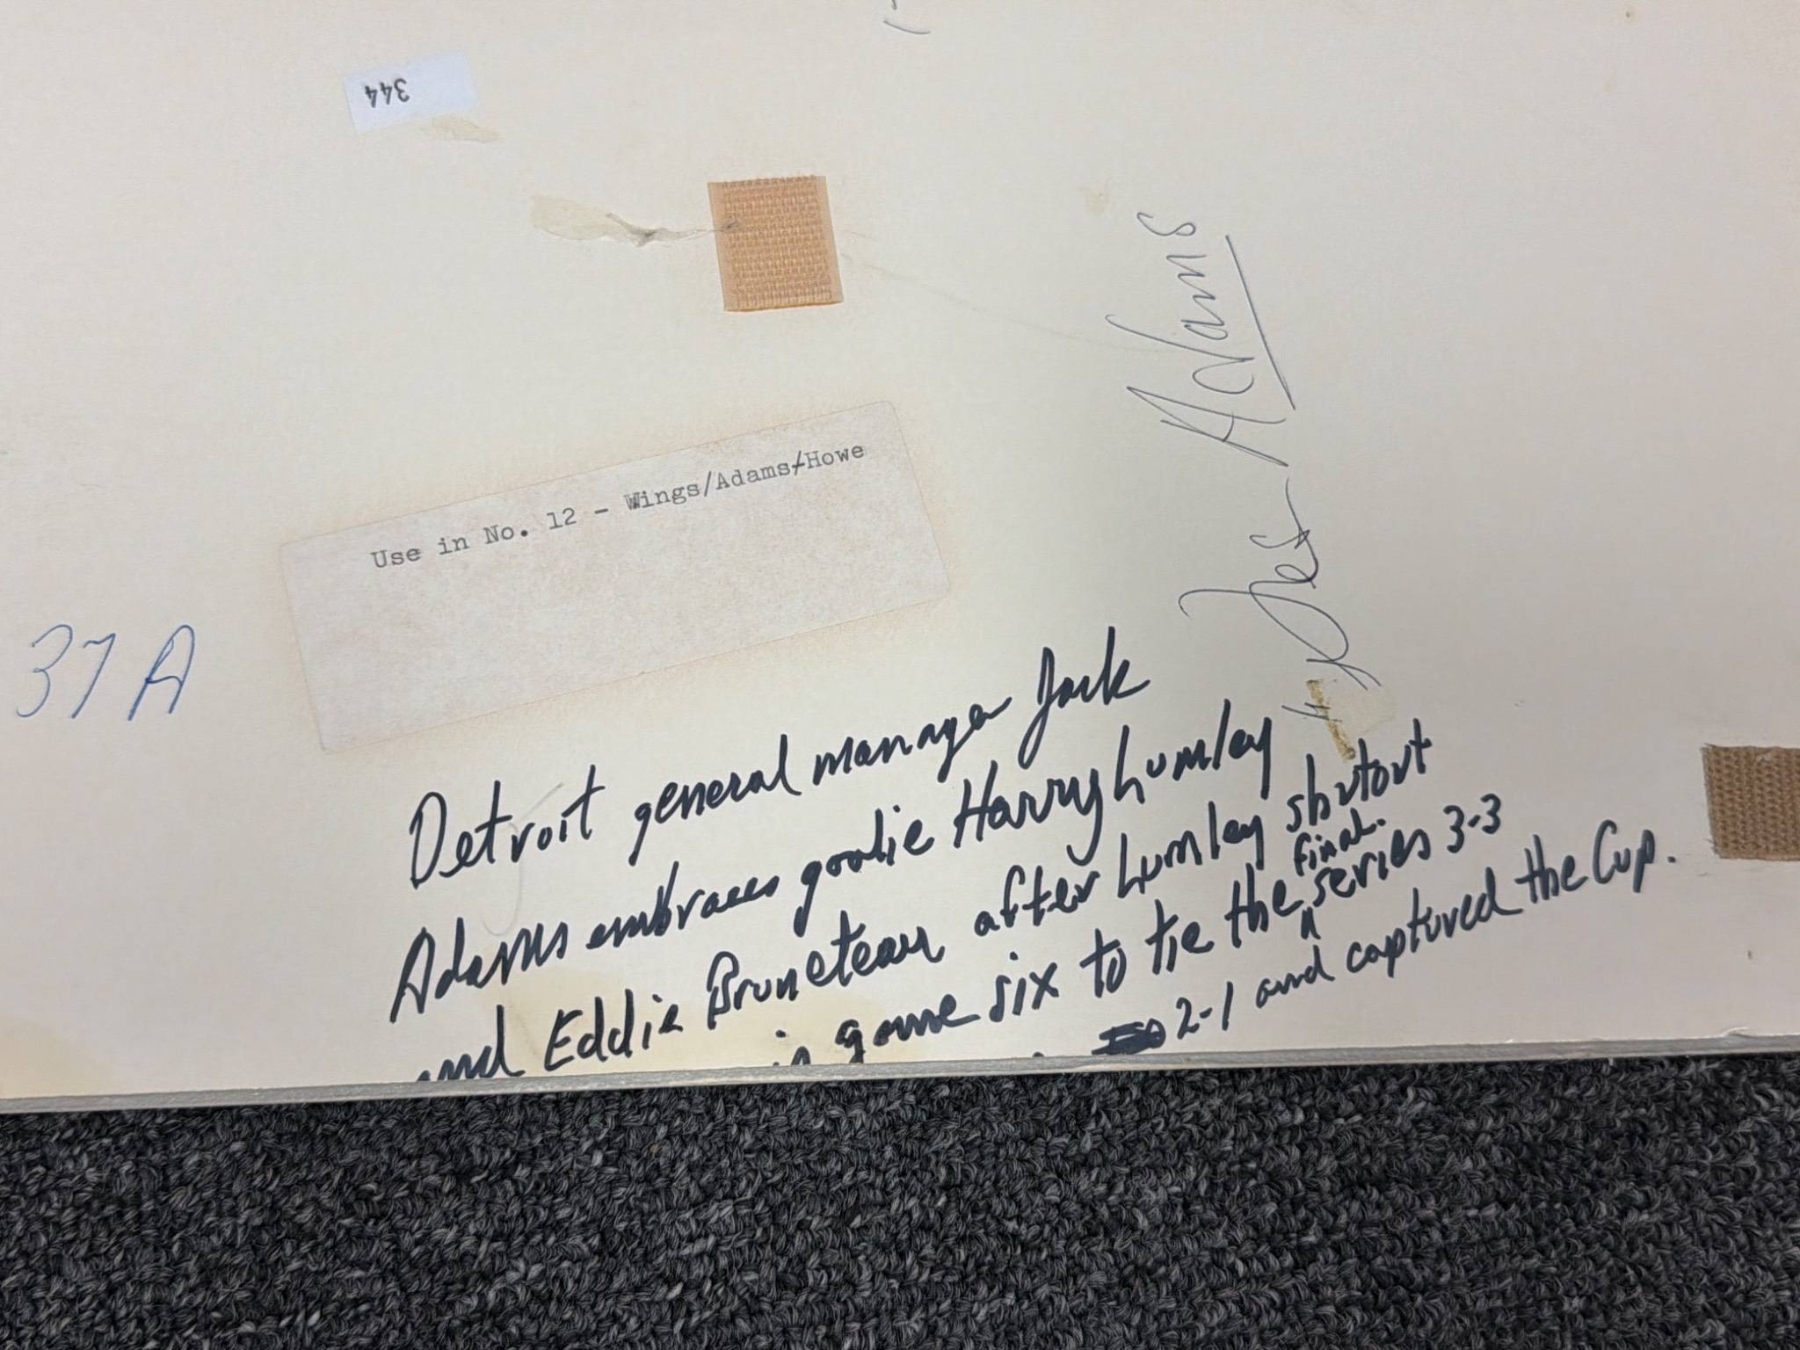 344
Use in No. 12 - Wings/Adams/Howe
Adams
37 A
Detroit general manager Jack
Adams embraces goalie Harry Lumley
and Eddie Bruneteau after Lumley shutout
in game six to tie the final series 3-3
2-1 and captured the Cup.